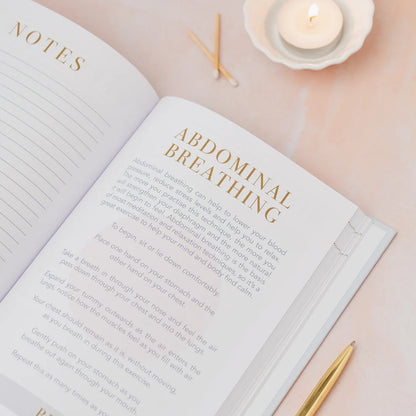 NOTES
ABDOMINAL
BREATHING
Abdominal breathing can help to lower your blood
pressure, reduce stress levels and help you to relax.
The more you practise this technique, the more you
will strengthen your diaphragm and the more natural
it will begin to feel. Abdominal breathing is the basis
of most meditation and relaxation techniques, so it's a
great exercise to help your mind and body find calm.
To begin, sit or lie down comfortably.
Place one hand on your stomach and the
other hand on your chest.
Take a breath in through your nose and feel the air
pass down through your chest and into the lungs.
Expand your tummy outwards as the air enters the
lungs, notice how the muscles feel as you fill with air.
Your chest should remain as it is, without moving,
as you breath in during this exercise.
Gently push on your stomach as you
breathe out again through your mouth.
Repeat this as many times as you